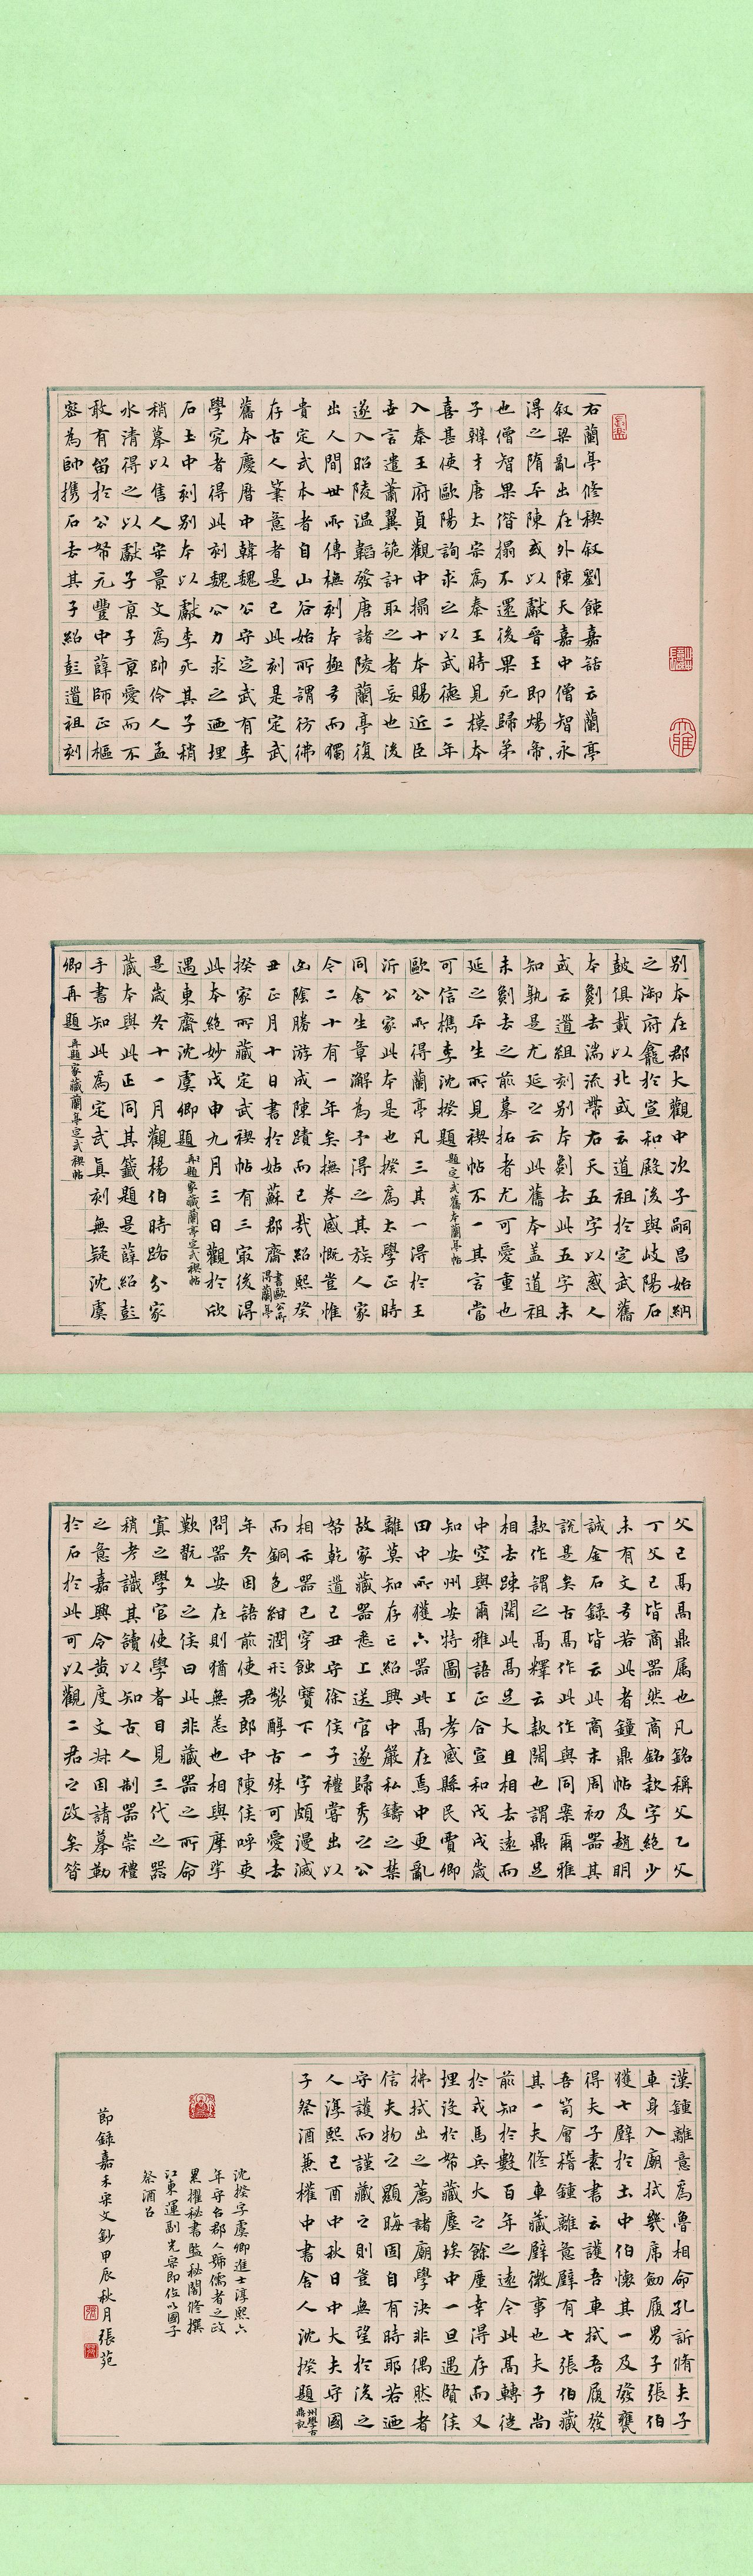 右蘭亭修禊叙劉餗嘉話云蘭亭
叙梁亂出在外陳天嘉中僧智永
得之隋平陳或以獻晉王即煬帝
也僧智果借搨不還後果死歸弟
子辯才唐太宗爲秦王時見模本
喜甚使歐陽詢求之以武德二年
入秦王府貞觀中搨十本賜近臣
世言遣蕭翼詭計取之者妄也後
遂入昭陵温韜發唐諸陵蘭亭復
出人間世所傳橅刻本極多而獨
貴定武本者自山谷始所謂彷彿
存古人筆意者是已此刻是定武
舊本慶曆中韓魏公守定武有李
學究者得此刻魏公力求之迺埋
石土中刻别本以獻李死其子稍
稍摹以售人宋景文爲帥伶人孟
水清得之以獻子京子京愛而不
敢有留於公帑元豐中薛師正樞
密為帥携石去其子紹彭道祖刻
别本在郡大觀中次子嗣昌始納
之御府龕於宣和殿後與岐陽石
鼓俱載以北或云道祖於定武舊
本劖去湍流帶右天五字以惑人
或云道祖刻别本劖去此五字未
知孰是尤延之云此舊本蓋道祖
未劖去之前摹拓者尤可愛重也
延之平生所見禊帖不一其言當
可信檇李沈揆題 題定武舊本蘭亭帖
歐公所得蘭亭凡三其一得於王
沂公家此本是也揆爲太學正時
同舍生章澥為予得之其族人家
今二十有一年矣撫卷感慨豈惟
幽陰勝游成陳蹟而已哉紹熙癸
丑正月十日書於姑蘇郡齋 書歐公所得蘭亭
揆家所藏定武禊帖有三最後得
此本絶妙戊申九月三日觀於欣
遇東齋沈虞卿題 再題家藏蘭亭定武禊帖
是歲冬十一月觀楊伯時路分家
藏本與此正同其籤題是薛紹彭
手書知此為定武真刻無疑沈虞
卿再題 再題家藏蘭亭定武禊帖
父己鬲鬲鼎属也凡銘稱父乙父
丁父己皆商器然商銘款字絶少
未有文多若此者鐘鼎帖及趙明
誠金石録皆云此商末周初器其
說是矣古鬲作此作與同案爾雅
款作謂之鬲釋云款闊也謂鼎足
相去踈闊此鬲足大且相去遠而
中空與爾雅語正合宣和戊戌歲
知安州安特圖上孝感縣民賈卿
田中所獲六器此鬲在焉中更亂
離莫知存亡紹興中嚴私鑄之禁
故家藏器悉上送官遂歸秀之公
帑乾道己丑守徐侯子禮嘗出以
相示器已穿蝕寶下一字頗漫滅
而銅色紺潤形製醇古殊可愛去
年冬因語前使君郎中陳侯呼吏
問器安在則猶無恙也相與摩挲
歎翫久之侯曰此非藏器之所命
寘之學官使學者目見三代之器
稍考識其讀以知古人制器崇禮
之意嘉興令黄度文叔因請摹勒
於石於此可以觀二君之政矣昔
漢鍾離意爲魯相命孔訢脩夫子
車身入廟拭幾席劒履男子張伯
獲七璧於土中伯懷其一及發甕
得夫子素書云護吾車拭吾履發
吾笥會稽鍾離意璧有七張伯藏
其一夫修車藏璧微事也夫子尚
前知於數百年之遠今此鬲轉徙
於戎馬兵火之餘厪幸得存而又
埋没於帑藏塵埃中一旦遇賢侯
拂拭出之薦諸廟學決非偶然者
信夫物之顯晦固自有時耶若迺
守護而謹藏之則豈無望於後之
人淳熙己酉中秋日中大夫守國
子祭酒兼權中書舍人沈揆題 州學古鼎記
沈揆字虞卿進士淳熙六
年守台郡人歸儒者之政
累擢秘書監秘閣修撰
江東運副光宗即位以國子
祭酒召
節録嘉禾宋文鈔甲辰秋月張苑